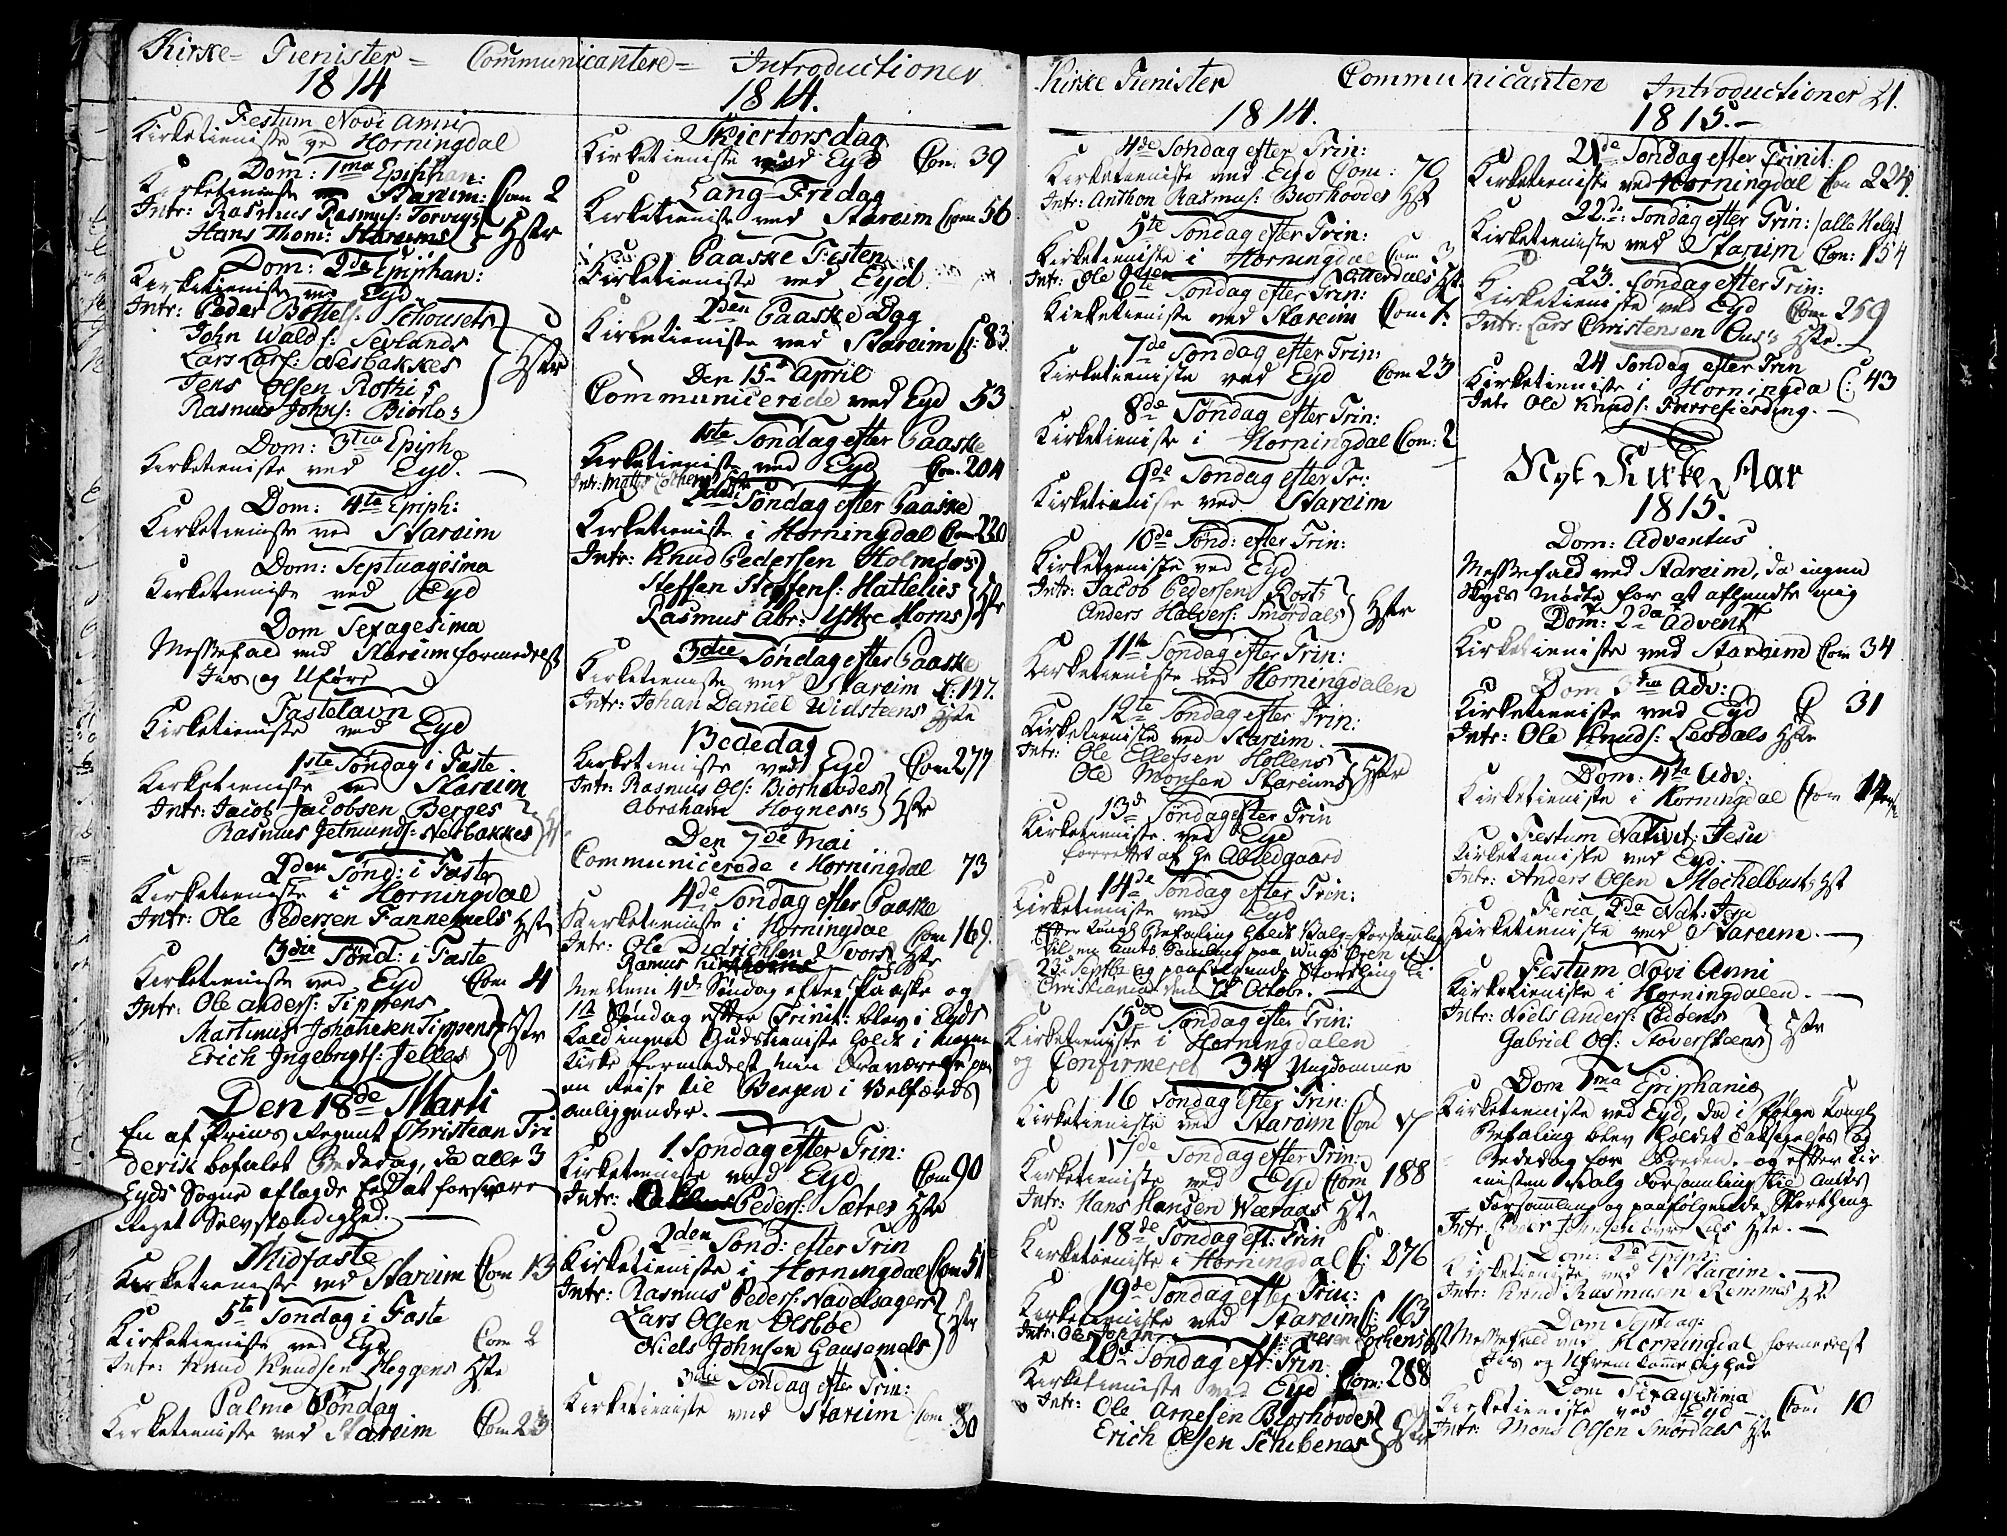 Kirke- Tienister- Communicantere- Introductioner
1814
Festum Novi Anni
Kirketieniste Horningdal
Dom: 1ma Epiphan:
Kirketieniste Stareim: Com 2
Intr: Rasmus Rasmus: Torvigs
Hans Thom: Stareims Hstr
Dom: 2da Epiphan:
Kirketieniste ved Eyd
Intr: Peder Schousets
John Sevlands
Lars Lars: Nesbakkes
Jens Olsen
Rasmus Johns: Biorlo:
Hstr
Dom: 3tia Epiph
Kirketieniste ved Eyd.
Dom: 4ta Epiph:
Kirketieniste ved Stareim
Dom: Septuagesima
Kirketieniste ved Eyd
Dom Sexagesima
Messefald ved Stareim formedelst
Iis og Uføre
Fastelavn
Kirketieniste ved Eyd
1ste Søndag i Faste
Kirketieniste ved Stareim
Intr: Jacob Jacobsen Berges
Rasmus Jetmunds: Nesbakkes
2den Sønd: i Faste
Kirketieniste i Horningdal
Intr: Ole Pedersen Fannemels Hstr
3die Sønd: i Faste
Kirketieniste ved Eyd Com 4
Intr: Ole Anders: Tippens
Martinus Johannesen Tippens
Erich Ingebrigts: Jelles
Hstr
Den 18de Marti
En af Prins Regent Christian Fri
derik befalet Bededag, da alle 3
Eyds Sogne aflagde Eed at forsvare
Riget Selvstændighed.
Midfaste
Kirketieniste ved Stareim Com 13
5te Søndag i Faste
Kirketieniste ved Eyd Com 2
Intr: Knud Knudsen Heggens Hstr
Palme Søndag
Kirketieniste ved Stareim Com 23
1814.
Skiertorsdag
Kirketieniste ved Eyd Com: 39
Lang-Fridag
Kirketieniste ved Stareim Com 56
Paaske Festen
Kirketieniste ved Eyd
2den Paaske Dag
Kirketieniste ved Stareim C: 83
Den 15de April
Communicerede ved Eyd 53
1ste Søndag efter Paaske
Kirketieniste ved Eyd Com. 204
2den Søndag efter Paaske
Kirketieniste i Horningdal Com 220
Intr: Knud Pedersen Holmøers
Steffen Steffens: Hattelies
Rasmus Abr: Ytre Horns
Hstr
3die Søndag efter Paaske
Kirketieniste ved Stareim C: 127.
Intr: Johan Daniel Widsteens Hstr
Bededag
Kirketieniste ved Eyd Com 277
Intr: Rasmus Ols: Biorhovdes
Abraham Hognes: Hstr
Den 7de Mai
Communicerede i Horningdal 73
4de Søndag efter Paaske
Kirketieniste i Horningdal Com 169.
Intr: Ole Didrichsen
Ramus Hstr
Mellem 4de Søndag efter Paaske og
1te Søndag efter Trinit: blev i Eyds
Kald ingen Gudstieniste holdt i nogen
Kirke formedelst min Fraværelse paa
en Reise til Bergen i Velfærds
anliggender.
1. Søndag efter Trin:
Kirketieniste ved Eyd Com 90
Intr: Peders: Sætres Hstr
2den Sønd: efter Trin
Kirketieniste i Horningdal Com 51
Intr: Rasmus Peders: Navelsagers
Lars Olsen
Niels Johnsen Gausemels
Hstr
3die Søndag efter Trin:
Kirketieniste ved Stareim Com 30
Kirke Tienister Communicantere Introductioner 21.
1814.
4de Søndag efter Trin:
Kirketieniste ved Eyd Com: 70
Intr: Anthon Rasmus: Biorhovdes Hstr
5te Søndag efter Trin:
Kirketieniste i Horningdal Com 3
Intr: Ole Olsen
6te Søndag efter Trin:
Kirketieniste ved Stareim Com 1:
7de Søndag efter Trin:
Kirketieniste ved Eyd Com 23
8de Søndag efter Trin:
Kirketieniste i Horningdal Com: 2
9de Søndag efter Tr:
Kirketieniste ved Stareim
10de Sønd: efter Trin:
Kirketieniste ved Eyd
Intr: Jacob Pedersen Rost:
Anders Halvers: Smørdals
Hstr
11te Søndag efter Trin:
Kirketieniste ved Horningdalen
12te Søndag efter Trin:
Kirketieniste ved Stareim.
Intr: Ole Ellefsen Hollens
Ole Monsen Stareims
Hstr
13de Søndag efter Trin
Kirketieniste ved Eyd
forrettet af Hr Abildgaard
14de Søndag efter Trin:
Kirketieniste ved Eyd
Efter Kongl: Befaling holdt Valg-forsamling
til en Amts Samling paa
23de Septbr og paafølgende Storting i
Christiania den 7de Octobr.
15de Søndag efter Trin:
Kirketieniste i Horningdalen
og Confirmeret 34 Ungdomme
16 Søndag efter Trin:
Kirketieniste ved Stareim Com 17
17de Søndag efter Trin:
Kirketieniste ved Eyd Com 188
Intr: Hans Hansen Weeraas Hstr
18de Søndag eft: Trin
Kirketieniste i Horningdal C: 276
19de Søndag efter Trin:
Kirketieniste ved Stareim C: 163
20de Søndag eft: Trin
Kirketieniste ved Eyd Com: 288
Intr: Ole Arnesen Biorhovdes
Erich Olsen Schibenes
Hstr
1815.
21de Søndag efter Trinit:
Kirketieniste ved Horningdal Com 224.
22de: Søndag efter Trin: (alle Helg:)
Kirketieniste ved Stareim Com: 154
23. Søndag efter Trin:
Kirketieniste ved Eyd Com 259
Intr: Lars Christensen Hstr.
24 Søndag efter Trin
Kirketieniste i Horningda C: 43
Intr Ole Knuds: Farrefierding.
Nyt Kirke Aar
1815.
Dom: Adventus
Messefald ved Stareim, da ingen
Skyds mødte for at afhendte mig
Dom: 2da Advent
Kirketieniste ved Stareim Com 34
Dom 3tia Adv:
Kirketieniste ved Eyd C 31
Intr: Ole Knuds: Leodals Hstr
Dom: 4ta Adv:
Kirketieniste i Horningdal Com
Festum Nativit: Jesu
Kirketieniste ved Eyd.
Intr: Anders Olsen Mochelbust: Hst
Feria 2da Nat: Jesu
Kirketieniste ved Stareim.
Festum Novi Anni
Kirketieniste i Horningdalen.
Intr: Niels Anders: Lødøens
Gabriel Ols: Stoverskeens
Hstr
Dom 1ma Epiphanie
Kirketieniste ved Eyd, da i Følge Kongl
Befaling blev holdt Taksigelses og
Bededag for Freden. og efter Tie
nisten Valg forsamling til Amts
Forsamling og paafølgende Storting
Intr: Peder Johnsen Hstr.
Dom: 2da Epiph:
Kirketieniste ved Stareim.
Intr: Knud Rasmusen Remmes Hstr
Dom Septuag:
Messefald ved Horningdal formedelst
Iis og Ufremkommelighed
Dom Sexagesima
Kirketieniste ved Eyd Com 10
Intr: Mons Olsen Smørdals Hstr